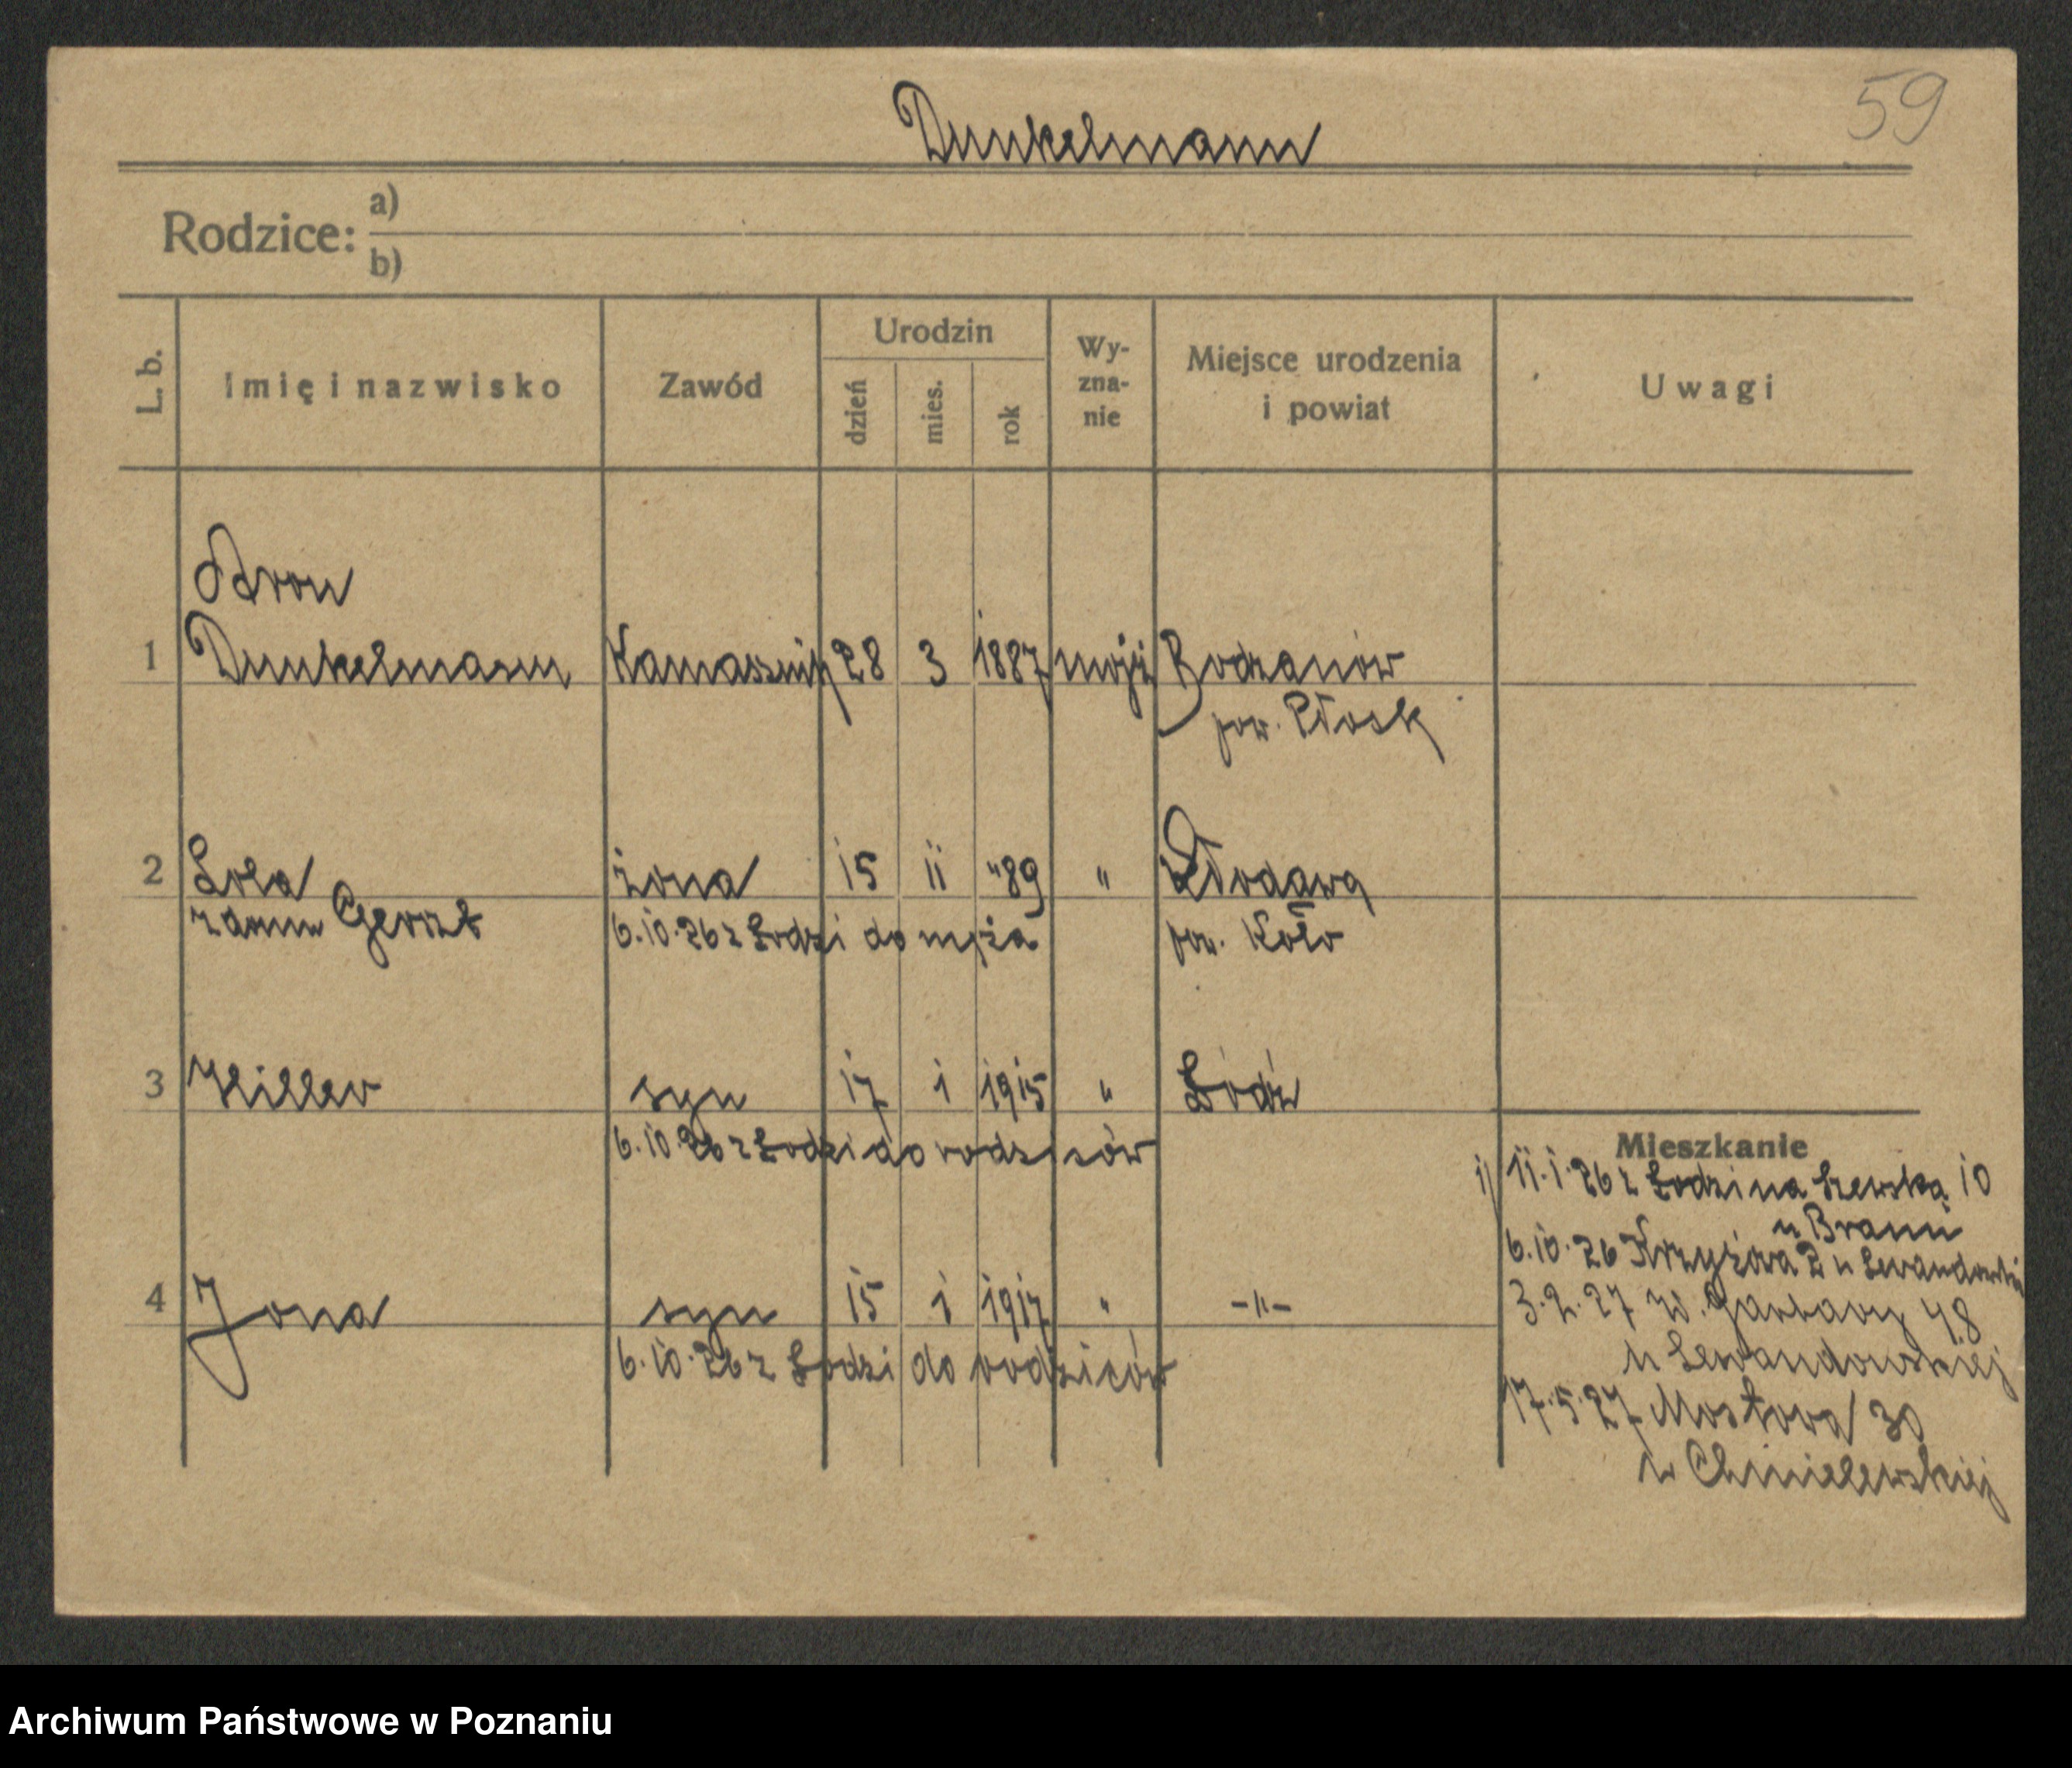 59
Dunkelmann
Rodzice: a)
b)
L. b. Imię i nazwisko Zawód Urodzin dzień mies. rok Wy-zna-nie Miejsce urodzenia i powiat Uwagi
Aron
1 Dunkelmann Kamasznik 28 3 1887 mojż Bodzanów
pow. Płosk
2 Lola żona 15 11 "89 " Kłodawa
z domu 6.10.26 z Łodzi do męża pow. Koło
3 Hiller syn 17 1 1915 " Łódź
6.10.26 z Łodzi do rodziców
4 Jona syn 15 1 1917 " -"-
6.10.26 z Łodzi do rodziców
Mieszkanie
1/ 11.1.26 z Łodzi na Szewską 10
u Brami
6.10.26 Krzyżowa 2 u Lewandowski
3.2.27 W. Garbary 48
u Lewandowskiej
17.5.27 Mostowa 30
u Chmielewskiej
Archiwum Państwowe w Poznaniu